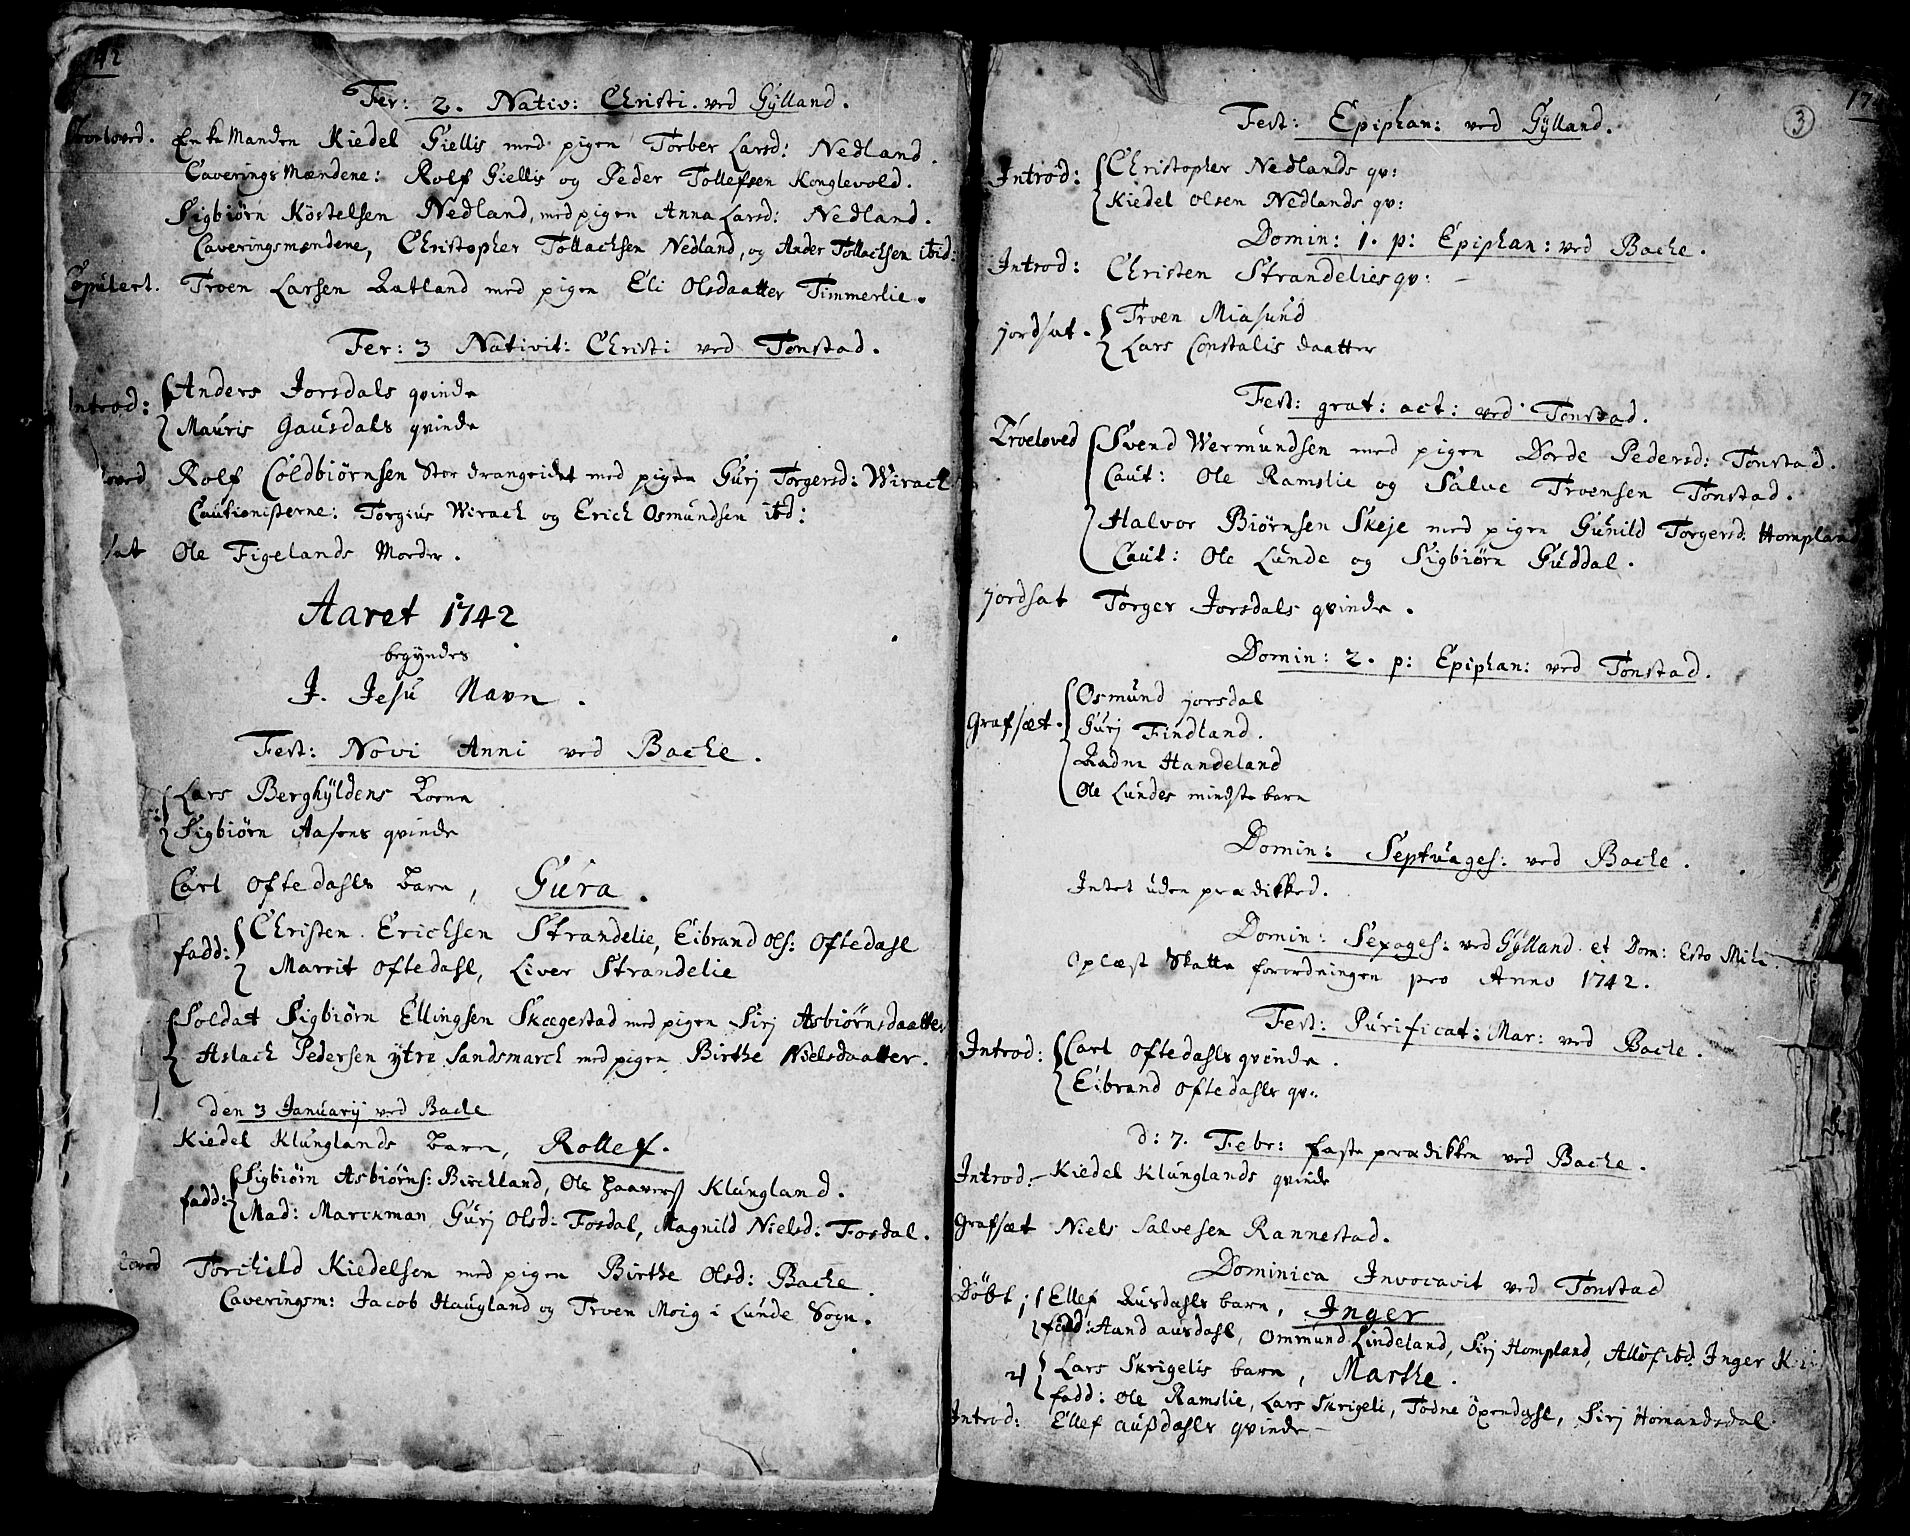 42
Fer: 2. Nativ: Christi. ved Gÿlland.
Troeloved. Enke Manden Kiedel Giellis med pigen Torber Larsd: Nedland.
Caverings Mændene: Rolf Giellis og Peder Tollefsen Konglevold.
Sigbiörn Köstelsen Nedland, med pigen Anna Larsd: Nedland.
Caveringsmændene, Christopher Tollachsen Nedland, og Ander Tollachsen ibid:
Copulert. Troen Larsen Ratland med pigen Eli Olsdaatter Timmerlie.
Fer: 3 Nativit: Christi ved Tonstad.
Introd: Anders Jorsdals qvinde
Mauris Gausdals qvinde
loved Rolf Coldbiörnsen Stor drangeidet med pigen Gurj Torgersd: Wirach
Cautionisterne: Torgius Wirach og Erich Osmundsen ibd:
sat Ole Figelands Moder.
Aaret 1742
begÿndes
J. Jesu Navn.
Fest: Novi Anni ved Bache.
Lars Berghÿldens Kone
Sigbiörn Aasens qvinde
Carl Oftedahls barn, Gura.
fadd: Christen Erichsen Strandelie, Eibrand Ols: Oftedahl
Marrit Oftedahl, Liver Strandelie
Soldat Sigbiörn Ellingsen Skægestad med pigen Sirj Asbiörnsdaatter
Aslach Pedersen ÿtre Sandsmarck med pigen Birthe Nielsdaatter.
den 3 Januarÿ ved Bache
Kiedel Klunglands barn, Rollef.
fadd: Sigbiörn Asbiörns: Birchland, Ole Haavers Klungland.
Mad: Marckman, Gurj Olsd: Fosdal, Magnild Nielsd: Fosdal.
loved Torchild Kiedelsen med pigen Birthe Olsd: Bache.
Caveringsm: Jacob Haugland og Troen Moig i Lunde Sogn.
3
17
Fest: Epiphan: ved Gÿlland.
Introd: Christopher Nedlands qv:
Kiedel Olsen Nedlands qv:
Domin: 1. p: Epiphan: ved Bache.
Introd: Christen Strandelies qv:
jordsat. Troen Miasund
Lars Constalis daatter
Fest: grat: act: ved Tonstad.
Troeloved Svend Wermundsen med pigen Dorde Pedersd: Tonstad.
Caut: Ole Ramslie og Salve Troensen Tonstad.
Halvor Biörnsen Skeje med pigen Gunild Torgersd: Hompland
Caut: Ole Lunde og Sigbiörn Guddal.
jordsat Torger Jorsdals qvinde.
Domin: 2. p: Epiphan: ved Tonstad.
Grafsæt. Osmund jorsdal
Gurj Findland.
Radne Handeland
Ole Lundes mindste barn
Domin: Septuages: ved Bache.
Intet uden prædikked.
Domin: Sexages: ved Gÿlland. et Dom: Esto Mihi.
Oplæst Skatte forordningen pro Anno 1742.
Fest: Purificat: Mar: ved Bache.
Introd: Carl Oftedahls qvinde.
Eibrand Oftedahls qv:
d: 7. Febr: faste prædikken ved Bache.
Introd. Kiedel Klunglands qvinde
Grafsæt Niels Salvesen Rannestad.
Dominica Invocavit ved Tonstad
Döbt 1 Ellef Ausdahls barn, Inger
fadd: Aand ausdahl, Ommund Lindeland, Sirj Hompland, Allof ibd. Inger
2 Lars Skrigelis barn, Marthe.
fadd: Ole Ramslie, Lars Skrigeli, Todne Öxendahl, Sirj Homandsdal
Introd: Ellef Ausdahls qvinde